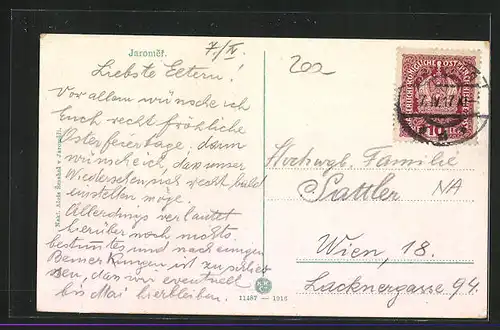 Jaroměř.
7/IV.
Liebste Eltern!
Vor allem wünsche ich
Euch recht fröhliche
Osterfeiertage, dann
wünsche ich, dass unser
Wiedersehen sich recht bald
einstellen möge.
Allerdings verlautet
hierüber noch nichts
bestimmtes und nach einigen
Bemerkungen ist zu schlies
sen, dass wir eventuell
bis Mai hierbleiben.
Nakl. Alois Šmahel v Jaroměři.
11487 — 1916
202
10
Hochwgb. Familie
Sattler
NA
Wien, 18.
Lacknergasse 94.